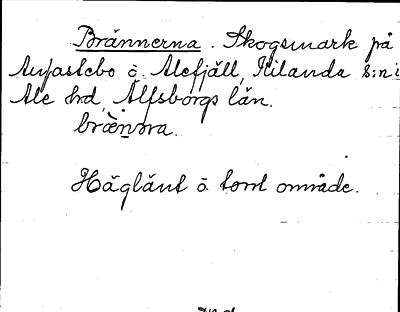 Brännerna. Skogsmark på
Anfastebo å Alefjäll, Kilanda s:n i
Ale hd, Älfsborgs län.
brænnra.
Höglänt å torrt område.